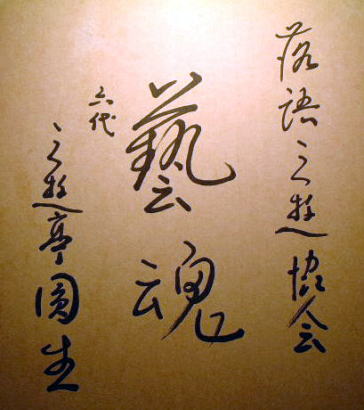 落語三遊協会
藝魂
六代
三遊亭圓生